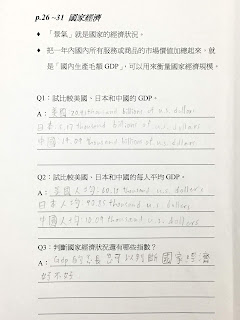 p.26 ~31 國家經濟
♦ 「景氣」就是國家的經濟狀況。
♦ 把一年內國內所有服務或商品的市場價值加總起來，就
是「國內生產毛額 GDP」，可以用來衡量國家經濟規模。
Q1：試比較美國、日本和中國的 GDP。
A：美國 thousand billions of u.s. dollars
日本 thousand billions of u.s. dollars
中國 thousand billions of u.s. dollars
Q2：試比較美國、日本和中國的每人平均 GDP。
A：美國人均 thousand u.s. dollars
日本人均 thousand u.s. dollars
中國人均 thousand u.s. dollars
Q3：判斷國家經濟狀況還有那些指數？
A：Gdp的 可以判斷國家經濟
好不好